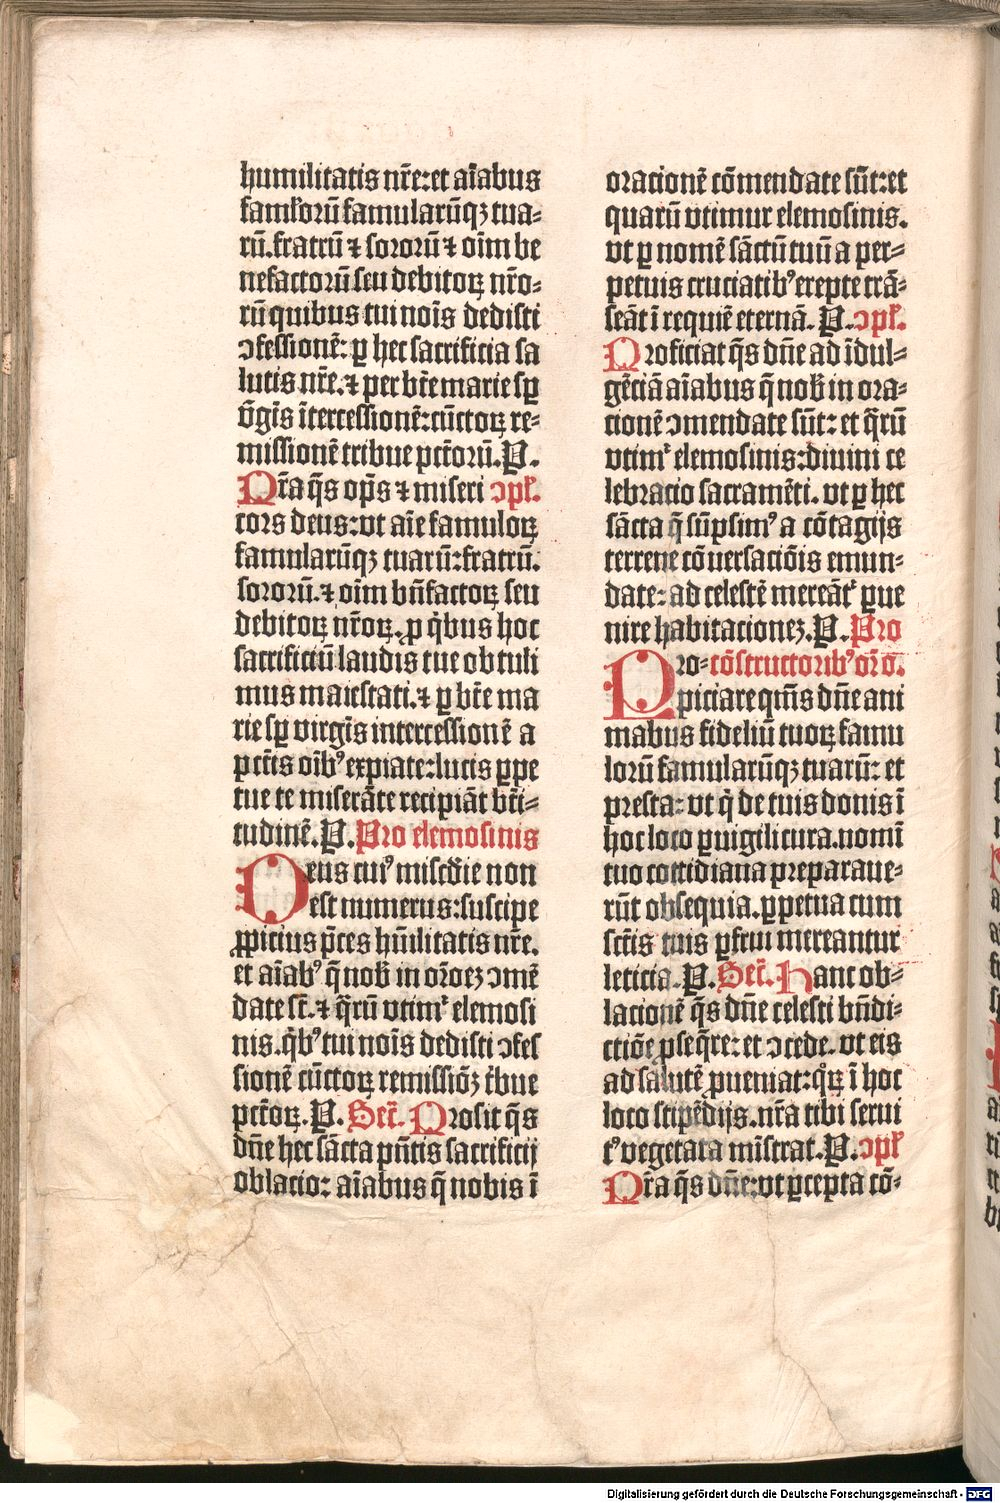 humilitatis nr̄e: et aīabus
famlorū famularūqꝫ tua⸗
rū. fratrū ⁊ sororū ⁊ oīm be
nefactorū seu debitoꝝ nr̄o⸗
rū quibus tui noīs dedisti
ↄfessionē: ꝑ hec sacrificia sa
lutis nr̄e. ⁊ per bt̄e marie sꝑ
v̄gīs ītercessionē: cūctoꝝ re⸗
missionē tribue pctōrū. P.
Qr̄a q̄s op̄s ⁊ miseri ↄpl̄.
cors deus: vt aīe famuloꝝ
famularūqꝫ tuarū: fratrū.
sororū. ⁊ oīm bn̄factoꝝ seu
debitoꝝ nr̄oꝝ, ꝓ qͥbus hoc
sacrificiū laudis tue obtuli
mus maiestati. ⁊ ꝑ bt̄e ma
rie sꝑ virgīs intercessionē a
pctīs oībꝰ expiate: lucis ꝑpe
tue te miserāte recipiāt bt̄i⸗
tudinē. P. Pro elemosinis
Deus cuiꝰ miscd̄ie non
est numerus: suscipe
ꝓpicius p̄ces hūilitatis nr̄e.
et aīabꝰ q̄ nob̄ in or̄oeꝫ ↄmē
date st̄. ⁊ q̄rū vtimr̄ elemosi
nis. qͥbꝰ tui noīs dedisti ↄfes
sionē cūctoꝝ remissiōꝫ tͥbue
pctōꝝ. P. Secr̄. Prosit q̄s
dn̄e hec sācta pn̄tis sacrificij
oblacio: aīabus q̄ nobis ī
oracionē cōmendate sūt: et
quarū vtimur elemosinis.
vt ꝑ nomē sāctū tuū a per⸗
petuis cruciatibꝰ erepte trā⸗
seāt ī requiē eternā. P. ↄpl̄.
Proficiat q̄s dn̄e ad īdul⸗
gēciā aīabus q̄ nob̄ in ora⸗
cionē ↄmendate sūt: et q̄rū
vtimr̄ elemosinis: diuini ce
lebracio sacramēti. vt ꝑ hec
sācta q̄ sūpsimꝰ a cōtagijs
terrene cōuersaciōis emun⸗
date: ad celestē mereātr̄ ꝑue
nire habitacionez. P. Pro
Pro⸗ cōstructoribꝰ or̄o.
piciare qm̄s dn̄e ani
mabus fideliū tuoꝝ famu
lorū famularūqꝫ tuarū: et
presta: vt qͥ de tuis donis ī
hoc loco ꝑuigili cura. nomī
tuo cottidiana preparaue⸗
rūt obsequia. ꝑpetua cum
sctīs tuis ꝑfrui mereantur
leticia. P. Secr̄. Hanc ob⸗
lacionē q̄s dn̄e celesti bn̄di⸗
ctiōe ꝓseq̄re: et ↄcede. vt eis
ad salutē ꝓueniat: qͦꝝ ī hoc
loco stipēdijs. nr̄a tibi serui
tꝰ vegetata mīstrat. P. ↄpl̄
Qr̄a q̄s dn̄e: vt ꝑcepta cō⸗
Digitalisierung gefördert durch die Deutsche Forschungsgemeinschaft - DFG